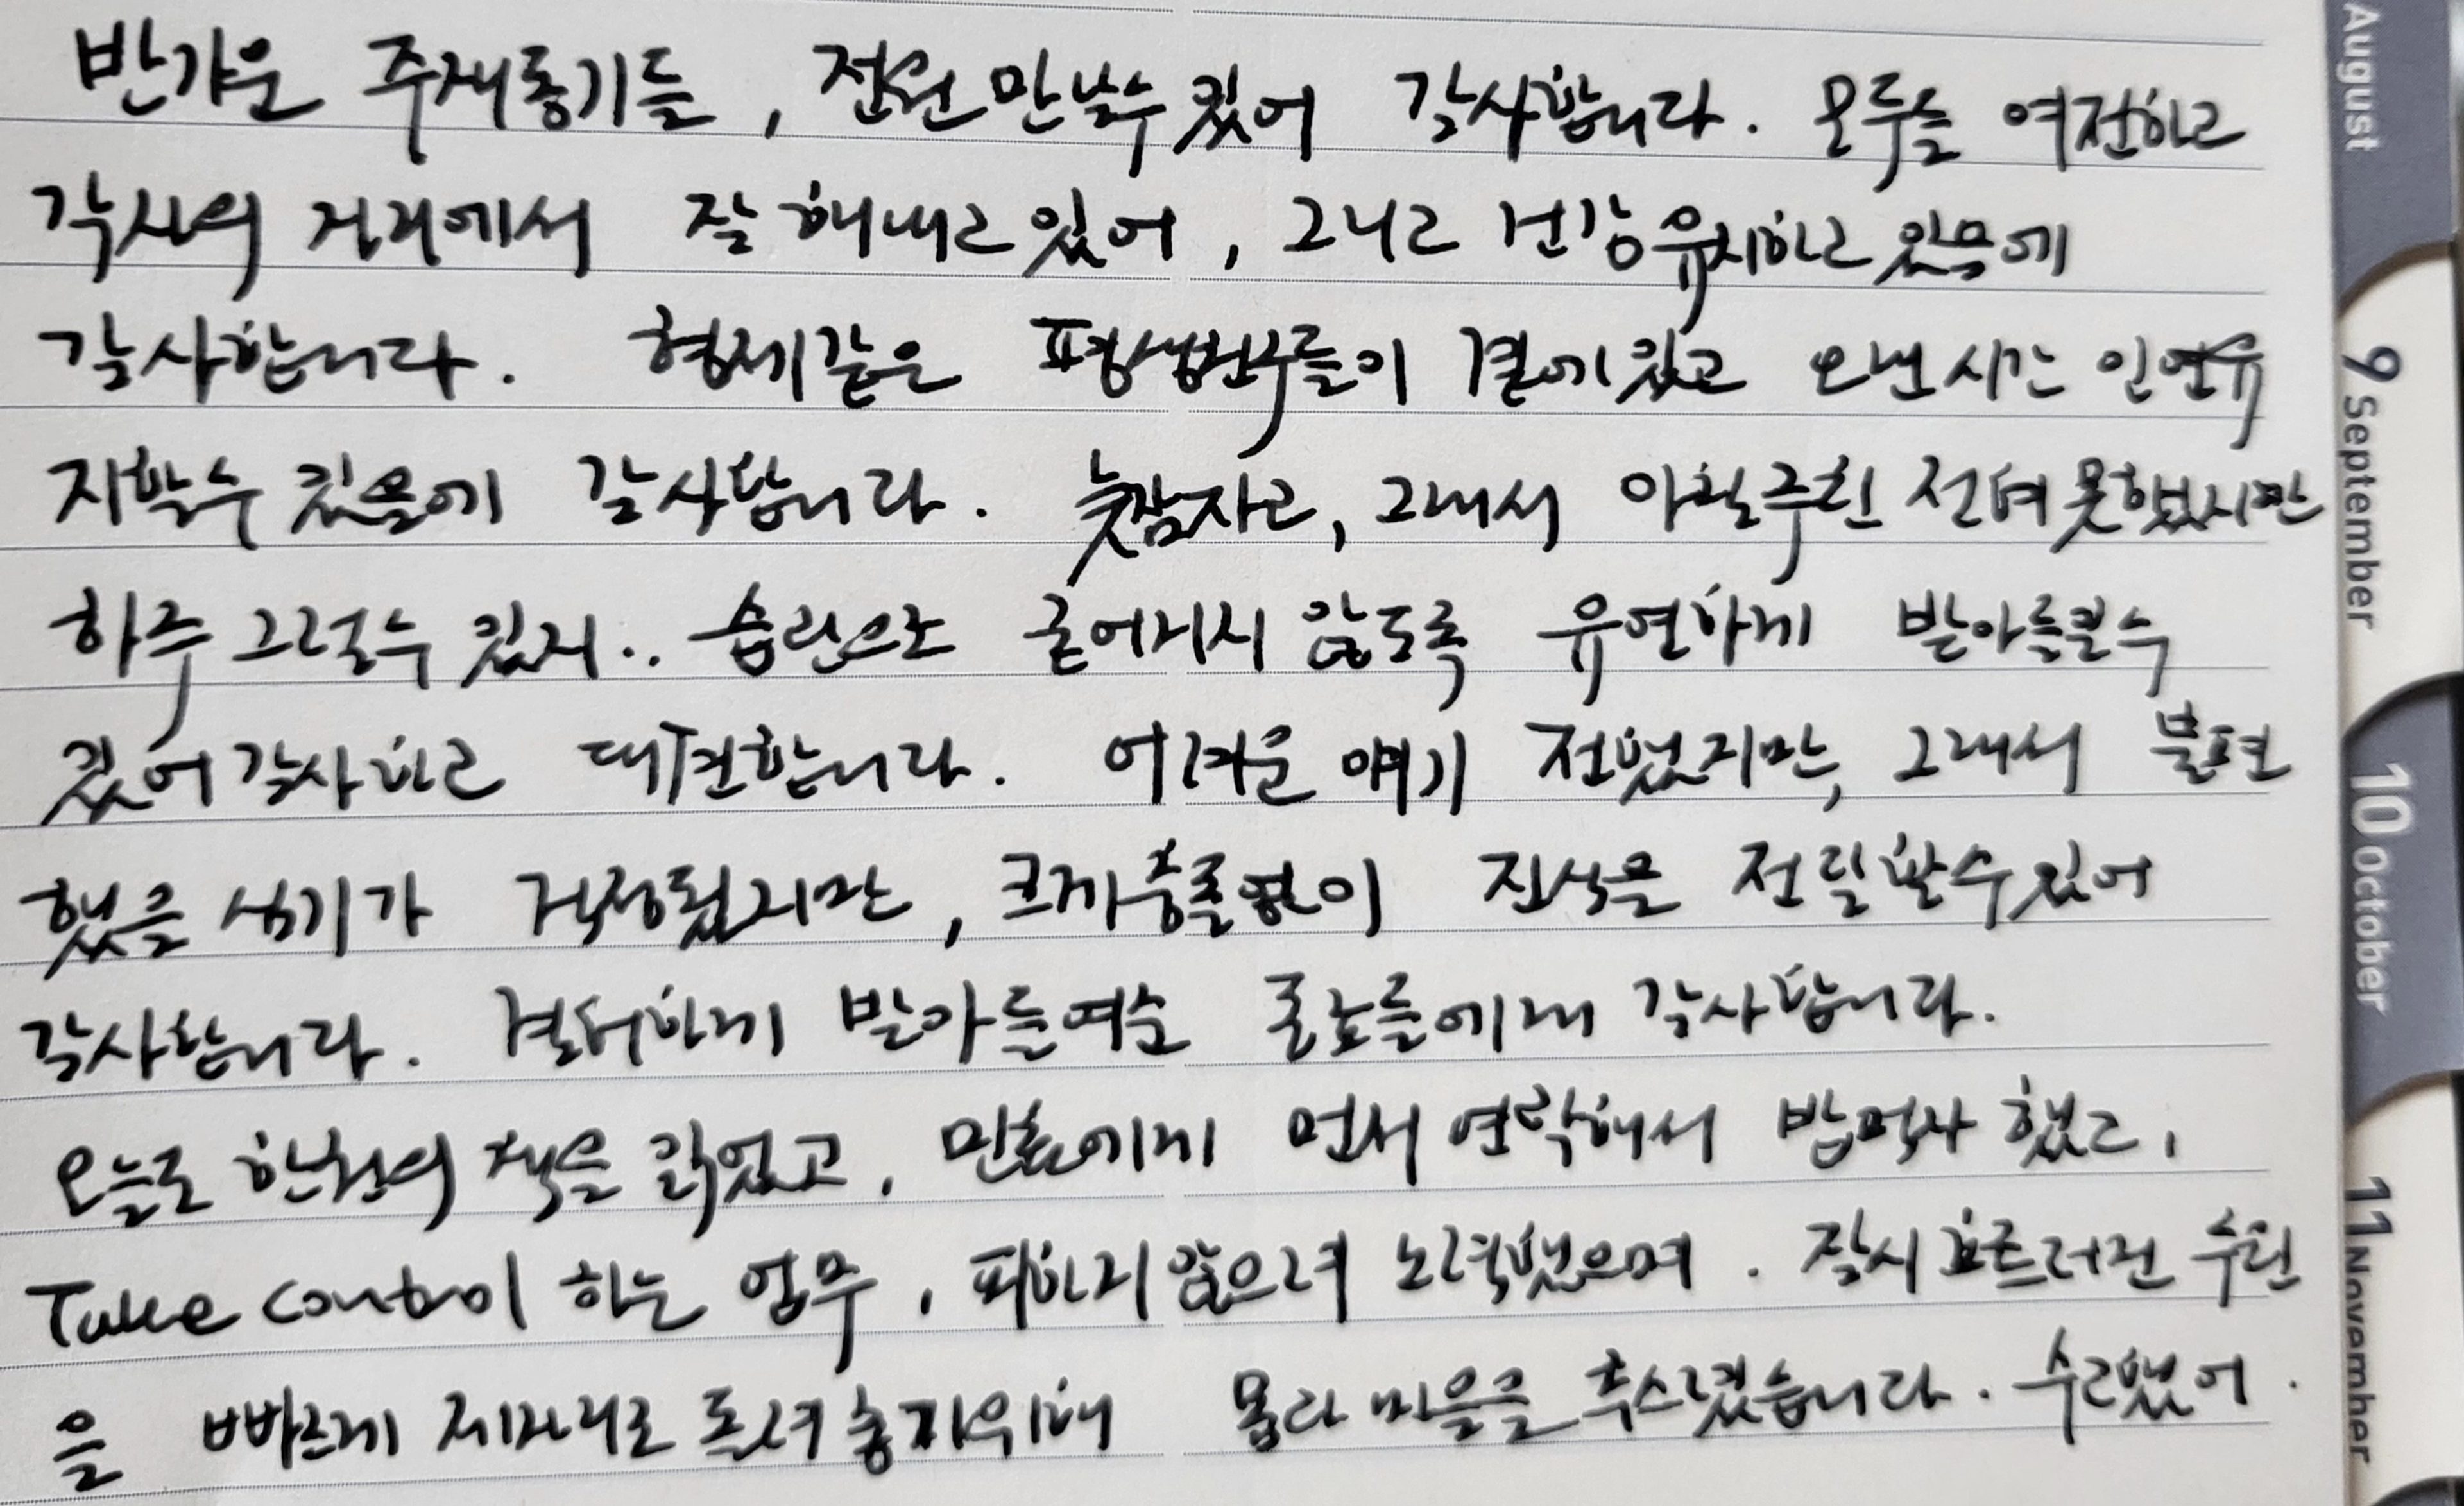 반가운 주재동기들, 전원 만날수 있어 감사합니다. 모두들 여전하고
각자의 자리에서 잘 해내고 있어, 그리고 건강유지하고 있음에
감사합니다. 형제같은 평생친구들이 곁에 있고 오랜시간 인연유
지할수 있음에 감사합니다. 늦잠자고, 그래서 아침루틴 전혀 못했지만
하루 그럴수 있지.. 습관으로 굳어지지 않도록 유연하게 받아들일수
있어 감사하고 대견합니다. 어려운 얘기 전했지만, 그래서 불편
했을 심기가 걱정됐지만, 크게 충돌없이 진심을 전달할수 있어
감사합니다. 겸허하게 받아들여준 동료들에게 감사합니다.
오늘도 한권의 책을 읽었고, 민호에게 먼저 연락해서 밥먹자 했고,
Take control 하는 업무, 피하지 않으려 노력했으며. 잠시 흐트러진 루틴
을 빠르게 제자리로 돌려놓기위해 몸과 마음을 추스렸습니다. 수고했어.
August
9 September
10 October
11 November